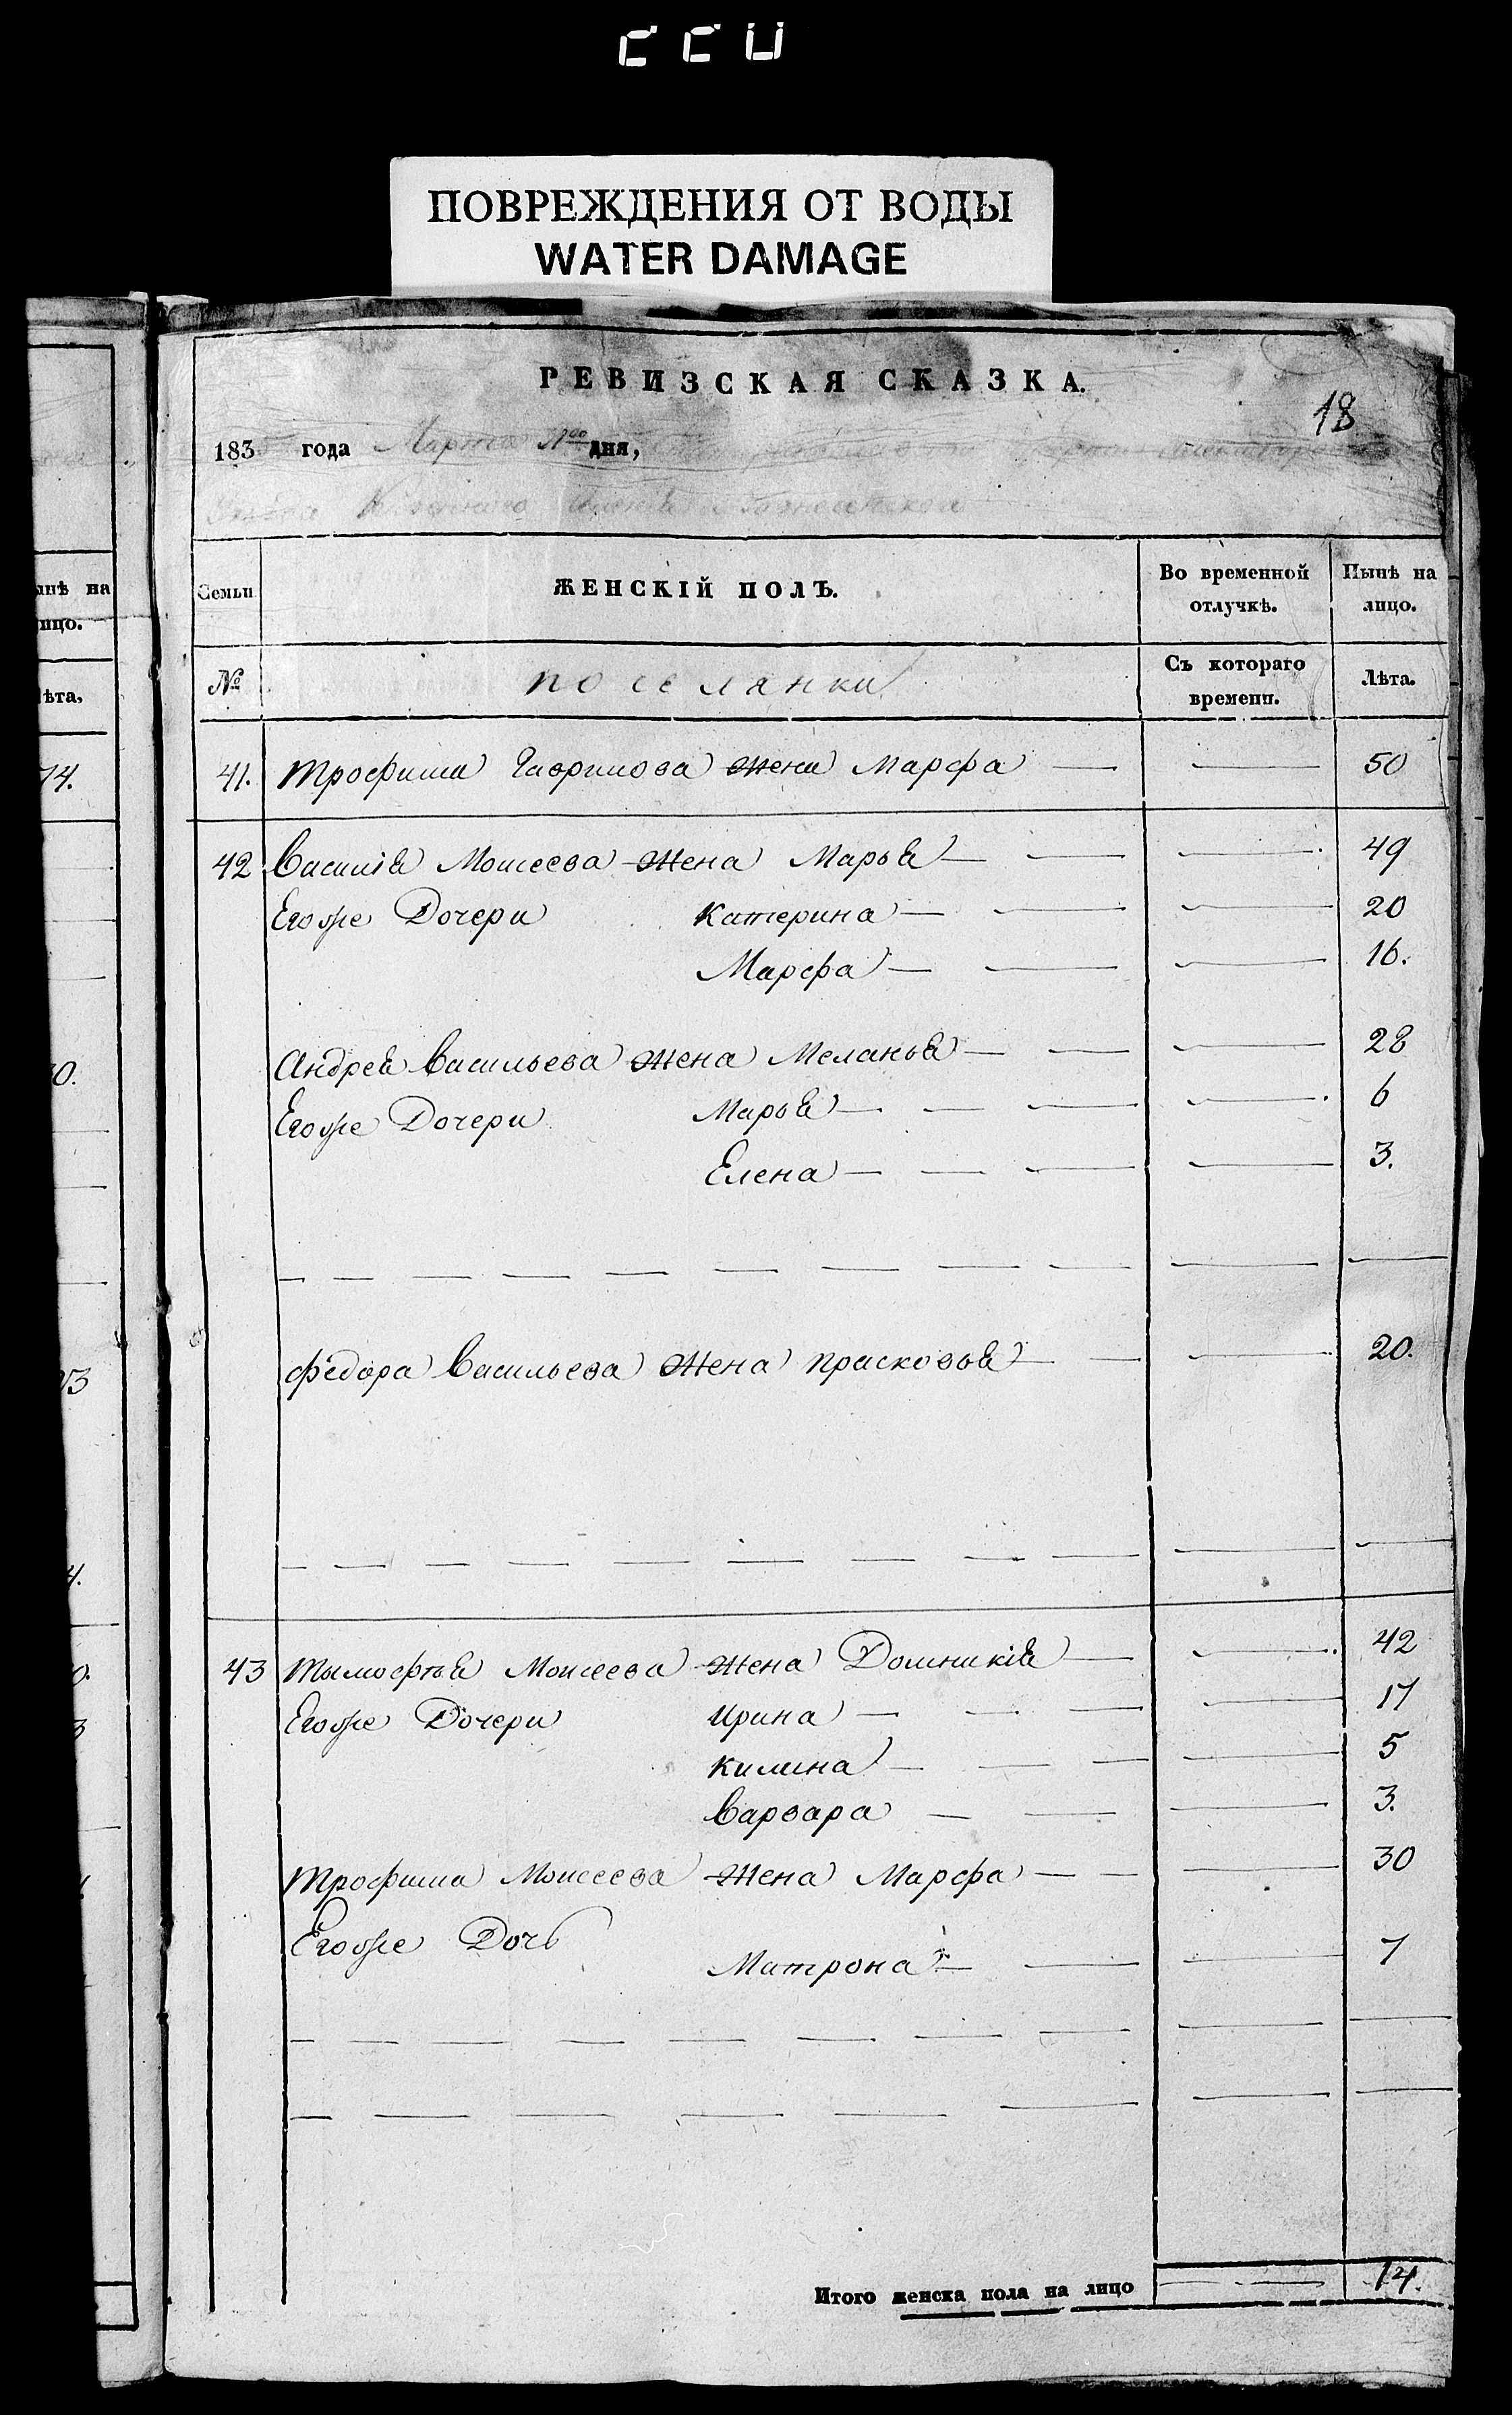 ПОВРЕЖДЕНИЯ ОТ ВОДЫ
WATER DAMAGE
РЕВИЗСКАЯ СКАЗКА.
18
183 года Марта дня,
ынѣ на
ицо.
ѣта,
74.
Семьи
ЖЕНСКІЙ ПОЛЪ.
Во временной отлучкѣ.
Нынѣ на лицо.
№
поселянки
Съ котораго времени.
Лѣта.
41. Трофима Гаврилова жена Марфа — — 50
42 Василія Моисеева жена Марья — — — 49
Егоже Дочери Катерина — — — 20
Марфа — — — 16.
Андрея Васильева жена Меланья — — — 28
Егоже Дочери Марья — — — — 6
Елена — — — — 3.
Федора Васильева жена Прасковья — — — 20.
43 Тымофтья Моисеева жена Домникія — — 42
Егоже Дочери Ирина — — — — 17
Килина — — — — 5
Варвара — — — 3.
Трофима Моисеева жена Марфа — — — 30
Егоже Дочь
Матрона — — — 7
Итого женска пола на лицо — — 14.